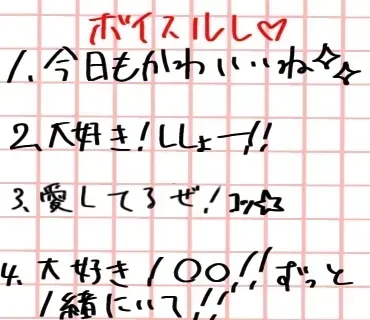 ボイスルし♡
1.今日もかわいいね☆☆
2.大好き!ししょー!!
3.愛してるぜ!コツ☆
4.大好き!○○!!ずっと
1緒にいて!!